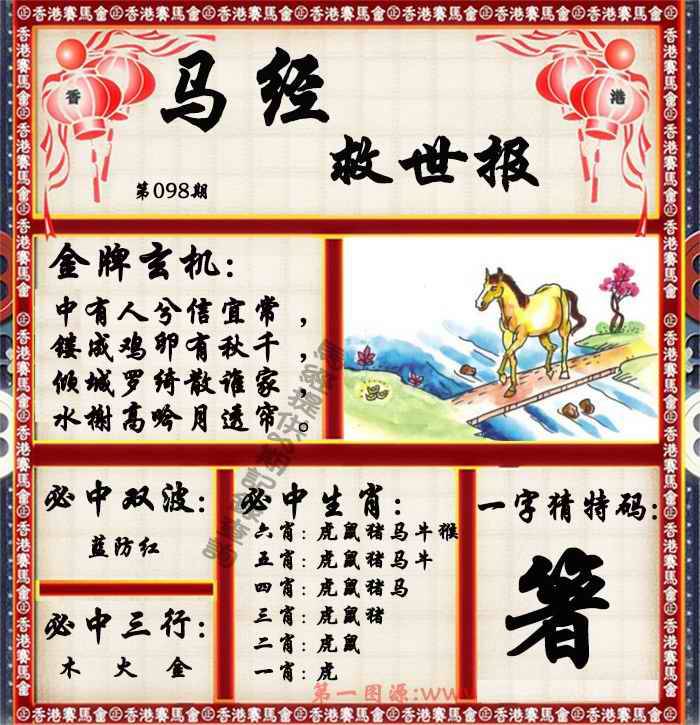 香港賽馬會
香
港
马经
救世报
第098期
金牌玄机：
中有人兮信宜常，
镂成鸡卵有秋千，
倾城罗绮散谁家，
水榭高吟月透帘。
必中双波：
蓝防红
必中三行：
木 火 金
必中生肖：
六肖：虎鼠猪马牛猴
五肖：虎鼠猪马牛
四肖：虎鼠猪马
三肖：虎鼠猪
二肖：虎鼠
一肖：虎
一字猜特码：
箸
第一图源:www